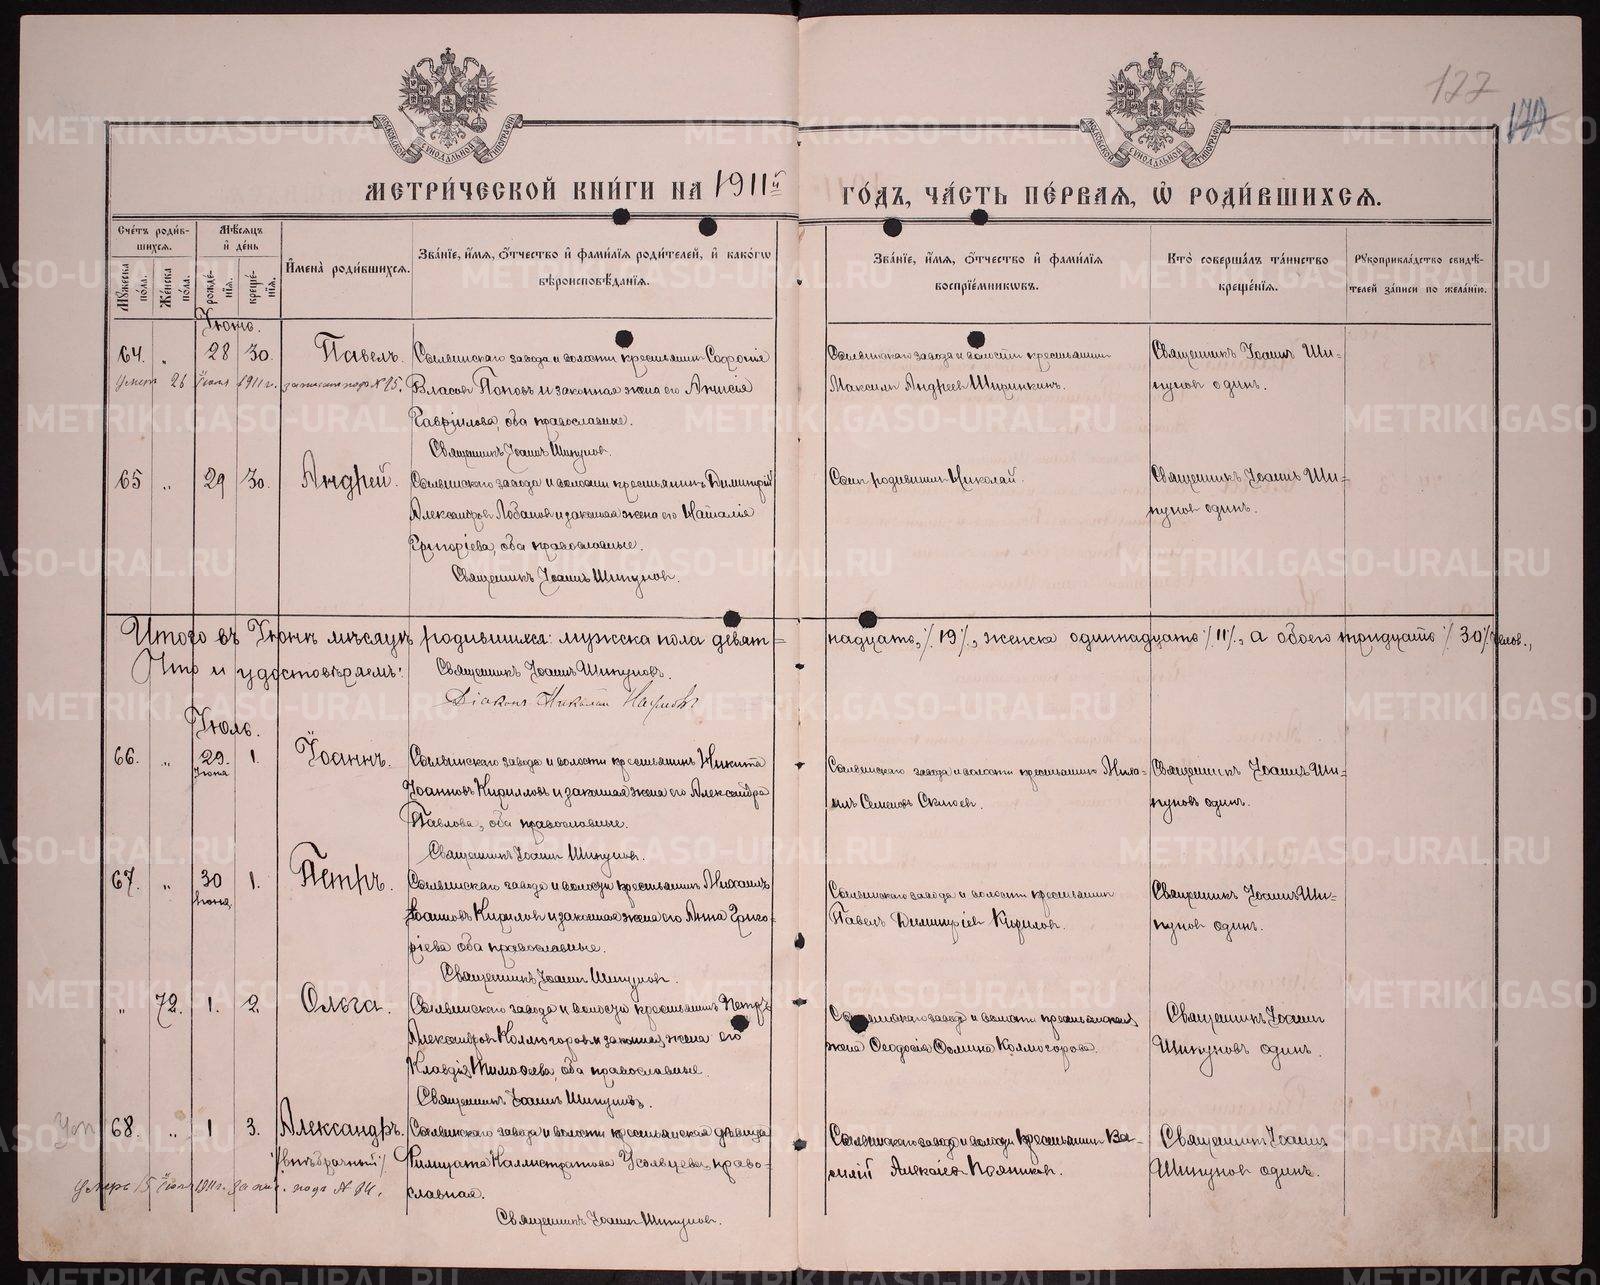 177
МЕТРИ́ЧЕСКОЙ КНИ́ГИ НА 1911й ГО́ДЪ, ЧА́СТЬ ПЕ́РВАЯ, Ѽ РОДИ́ВШИХСЯ.
Сче́тъ роди́в-шихся.
Мужеска по́ла.
Же́нска по́ла.
Мѣ́сяцъ и де́нь
рожде́-нія.
креще́-нія.
Имена̀ роди́вшихся.
Зва́ніе, и́мя, о́тчество и фами́лія роди́телей, и како́гѡ
вѣроисповѣ́данія.
Зва́ніе, и́мя, о́тчество и фами́лія
воспріе́мниковъ.
Кто̀ соверша́лъ та́инство
креще́нія.
Рукоприкла́дство свидѣ́-
телей за́писи по жела́нію.
Іюнь.
64. " 28 30. Павелъ.
Умеръ 26 Іюля 1911 г. записанъ под №
Сылвинскаго завода и волости крестьянинъ Софроній
Власовъ Поповъ и законная жена его Анисія
Гавріилова, оба православные.
Священникъ Іоаннъ Шипуновъ.
Сылвинскаго завода и волости крестьянинъ
Максимъ Андреевъ Ширинкинъ.
Священникъ Іоаннъ Ши-
пуновъ одинъ.
65 " 29 30. Андрей.
Сылвинскаго завода и волости крестьянинъ Димитрій
Александровъ Лобановъ и законная жена его Наталія
Григоріева, оба православные.
Священникъ Іоаннъ Шипуновъ.
Сынъ родившій Николай.
Священникъ Іоаннъ Ши-
пуновъ одинъ.
Итого въ Іюнѣ мѣсяцѣ родившихся: мужска пола девят-надцать, /19/, женска одиннадцать /11/, а обоего тридцать /30/ челов.,
Что и удостовѣряемъ:
Священникъ Іоаннъ Шипуновъ.
Діаконъ Николай
Іюль.
66. " 29. Іюня 1. Іоаннъ.
Сылвинскаго завода и волости крестьянинъ Никита
Іоанновъ Кирилловъ и законная жена его Александра
Павлова, оба православные.
Священникъ Іоаннъ Шипуновъ.
Сылвинскаго завода и волости крестьянинъ Миха-
илъ Семеновъ
Священникъ Іоаннъ Ши-
пуновъ одинъ.
67. " 30 Іюня 1. Петръ.
Сылвинскаго завода и волости крестьянинъ Михаилъ
Іоанновъ Кириловъ и законная жена его Анна Григо-
ріева оба православные.
Священникъ Іоаннъ Шипуновъ.
Сылвинскаго завода и волости крестьянинъ
Павелъ Димитріевъ Кириловъ.
Священникъ Іоаннъ Ши-
пуновъ одинъ.
" 72. 1. 2. Ольга.
Сылвинскаго завода и волости крестьянинъ Петръ
Александровъ Колмогоровъ и законная жена его
Клавдія Тимоѳеева, оба православные.
Священникъ Іоаннъ Шипуновъ.
Сылвинскаго завода и волости крестьянская
жена Ѳеодосія Ѳомина Колмогорова.
Священникъ Іоаннъ
Шипуновъ одинъ.
68. " 1 3. Александръ.
/внѣбрачный/
Умеръ 15 Іюля 1911 г. запис. подъ №
Сылвинскаго завода и волости крестьянская дѣвица
Каллистратова Усольцева, право-
славная.
Священникъ Іоаннъ Шипуновъ.
Сылвинскаго завода и волости крестьянинъ Ва-
силій Алексѣевъ
Священникъ Іоаннъ
Шипуновъ одинъ.
METRIKI.GASO-URAL.RU